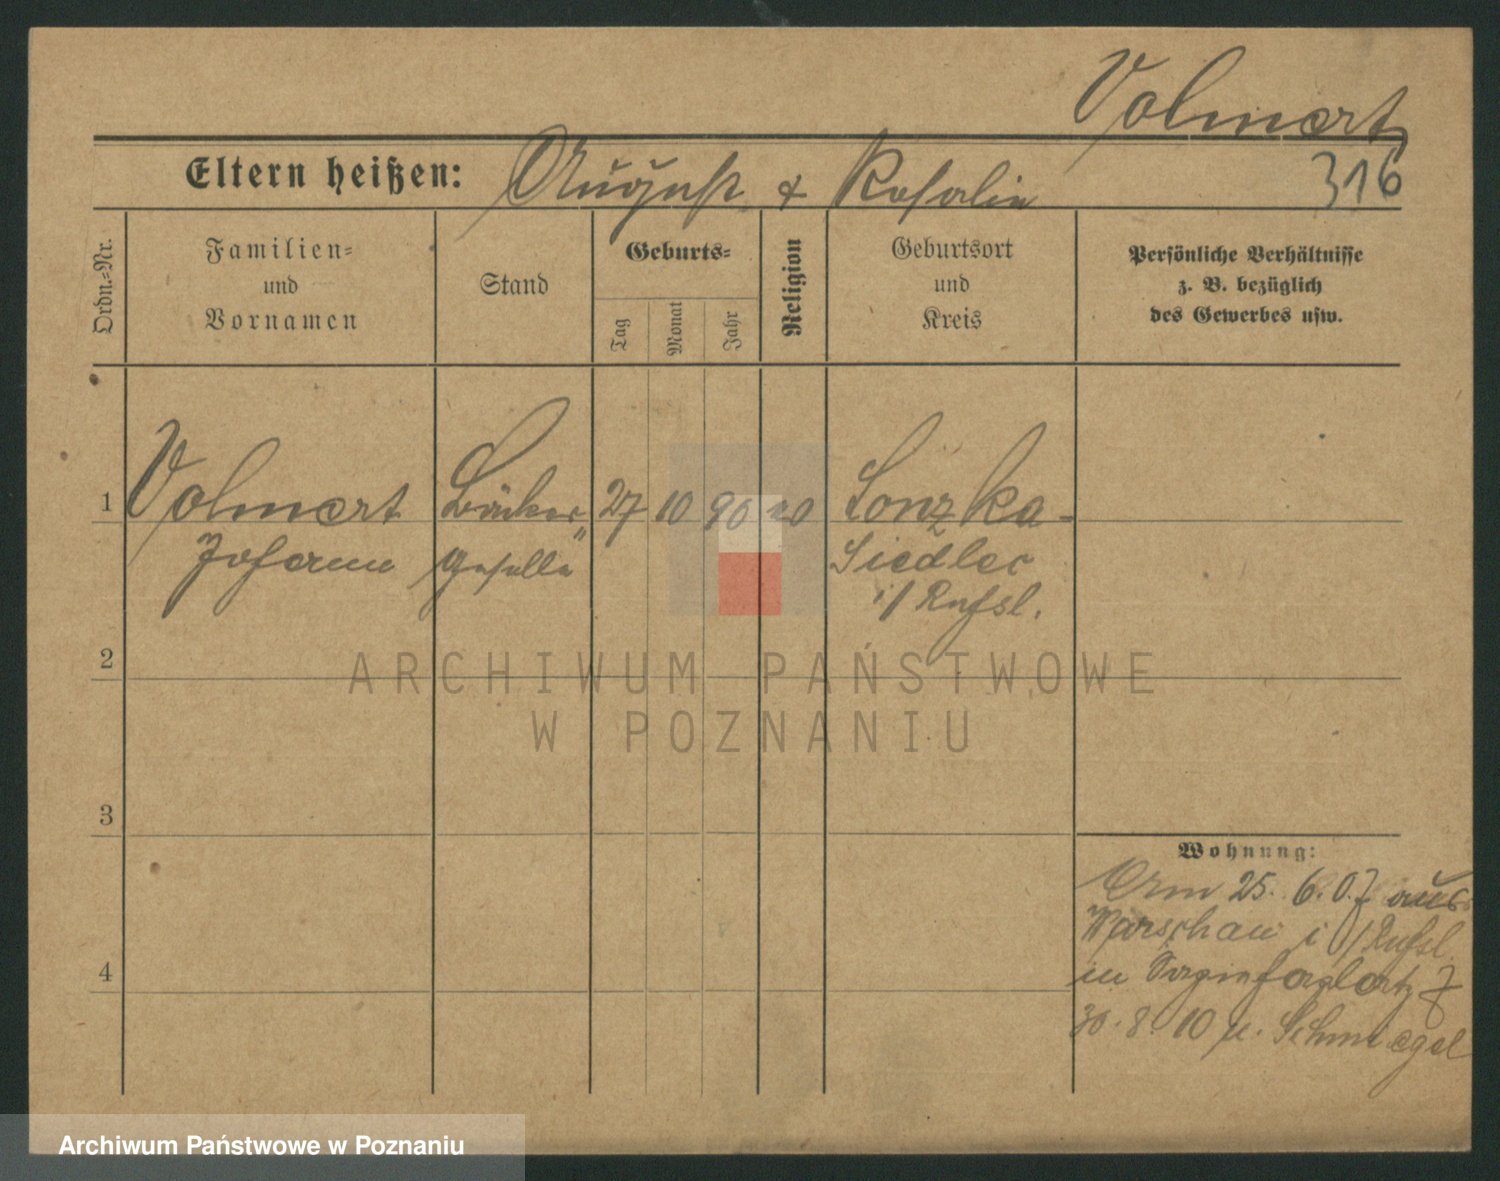 Volmert
Eltern heißen: August & Rosalie
316
Ordn.-Nr.
Familien-
und
Vornamen
Stand
Geburts-
Tag
Monat
Jahr
Religion
Geburtsort
und
Kreis
Persönliche Verhältnisse
z. B. bezüglich
des Gewerbes usw.
1
Volmert
Johann
Bäcker
geselle
27
10
90
Siedlec
i/Rußl.
2
3
4
Wohnung:
25. 6. 07 aus
Warschau i/Rußl.
in 7
30. 8. 10 n. Schmiegel
ARCHIWUM PAŃSTWOWE
W POZNANIU
Archiwum Państwowe w Poznaniu